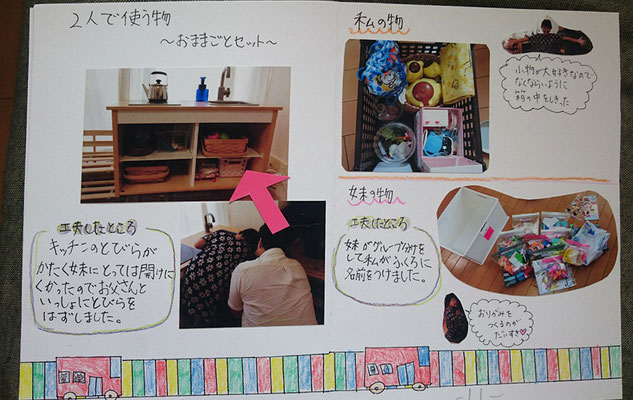 2人で使う物
～おままごとセット～
工夫したところ
キッチンのとびらが
かたく妹にとっては開けに
くかったのでお父さんと
いっしょにとびらを
はずしました。
私の物
小物が大好きなので
なくならないように
箱の中をしきった
妹の物
工夫したところ
妹がグループ分けを
して私がふくろに
名前をつけました。
おりがみを
つくるのが
だいすき♥